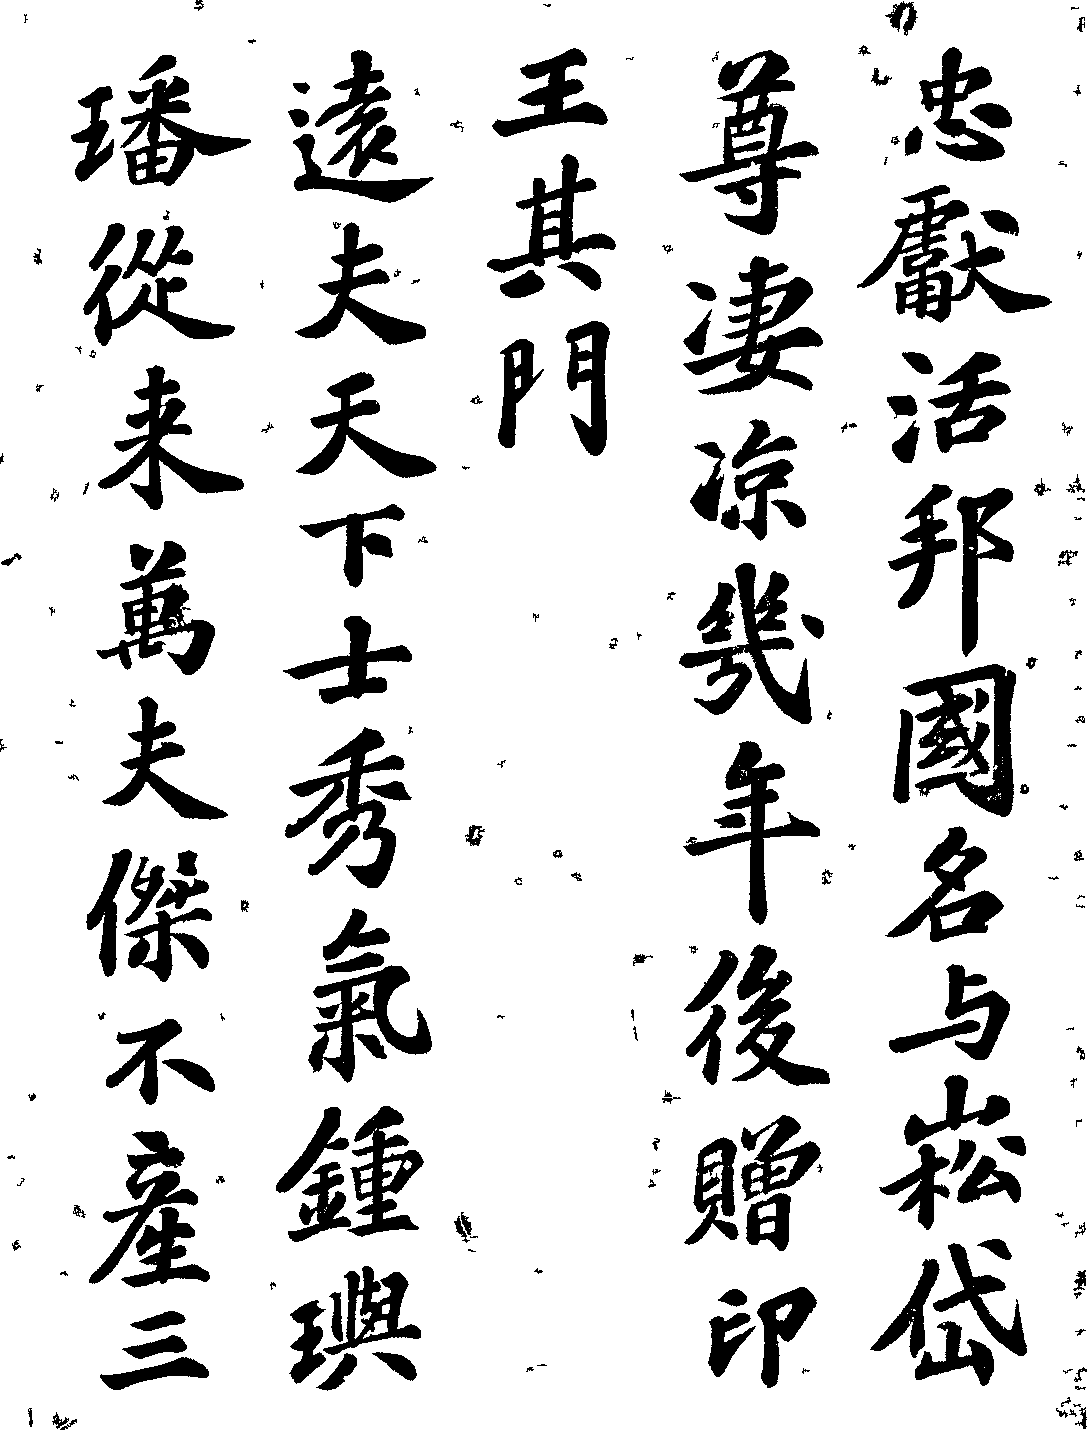 忠獻活邦國名与崧岱
尊淒涼幾年後贈印
王其門
遠夫天下士秀氣鍾璵
璠從来萬夫傑不產三